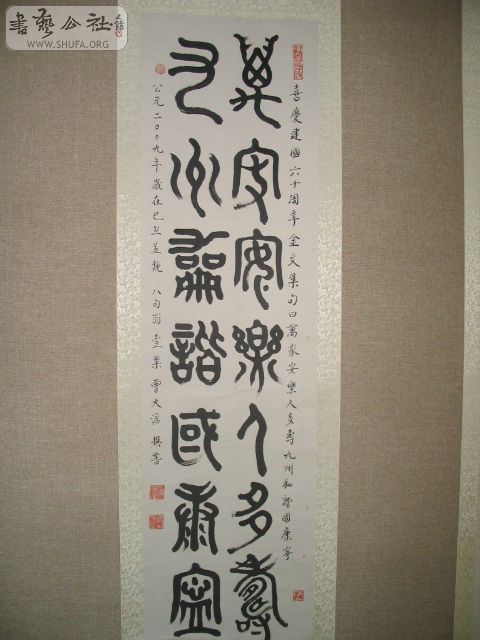 書藝公社
WWW.SHUFA.ORG
喜慶建國六十周年金文集句曰萬家安樂人多壽九州和諧國康寧
萬家安樂人多壽
九州龢諧國康寧
公元二〇〇九年歲在己丑 八旬翁 壹粟 曾大 撰書